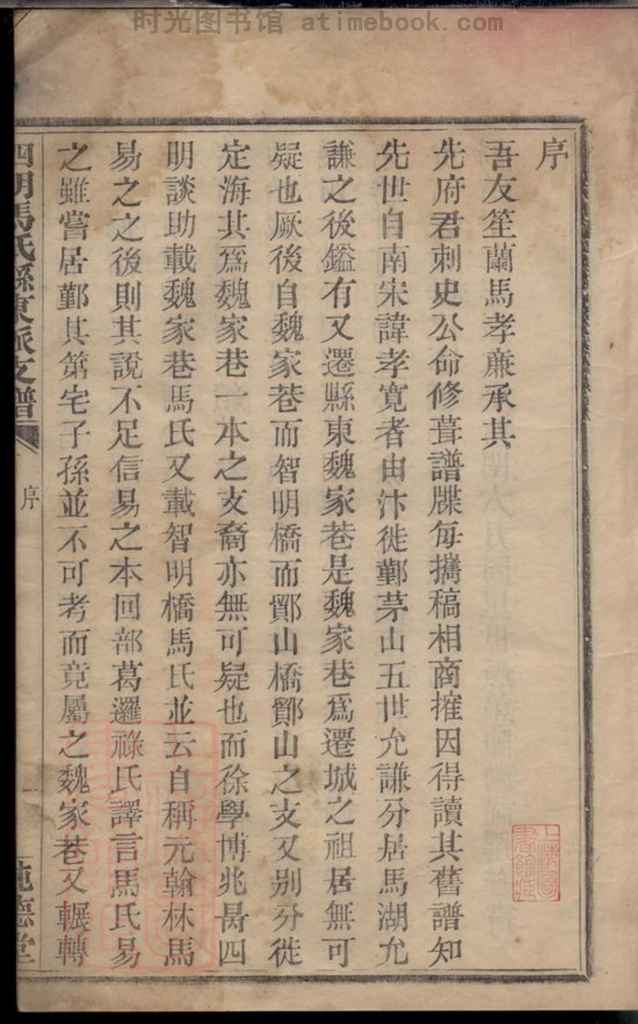 时光图书馆 atimebook.com
序
吾友笙蘭馬孝廉承其
先府君刺史公命修葺譜牒每攜稿相商搉因得讀其舊譜知
先世自南宋諱孝寬者由汴徙鄞茅山五世允謙分居馬湖允
謙之後鎰有又遷縣東魏家巷是魏家巷爲遷城之祖居無可
疑也厥後自魏家巷而智明橋而鄮山橋鄮山之支又别分徙
定海其爲魏家巷一本之支裔亦無可疑也而徐學博兆昺四
明談助載魏家巷馬氏又載智明橋馬氏並云自稱元翰林馬
易之之後則其說不足信易之本回部葛邏祿氏譯言馬氏易
之雖嘗居鄞其第宅子孫並不可考而竟屬之魏家巷又輾轉
四明馬氏縣東派支譜 序 一